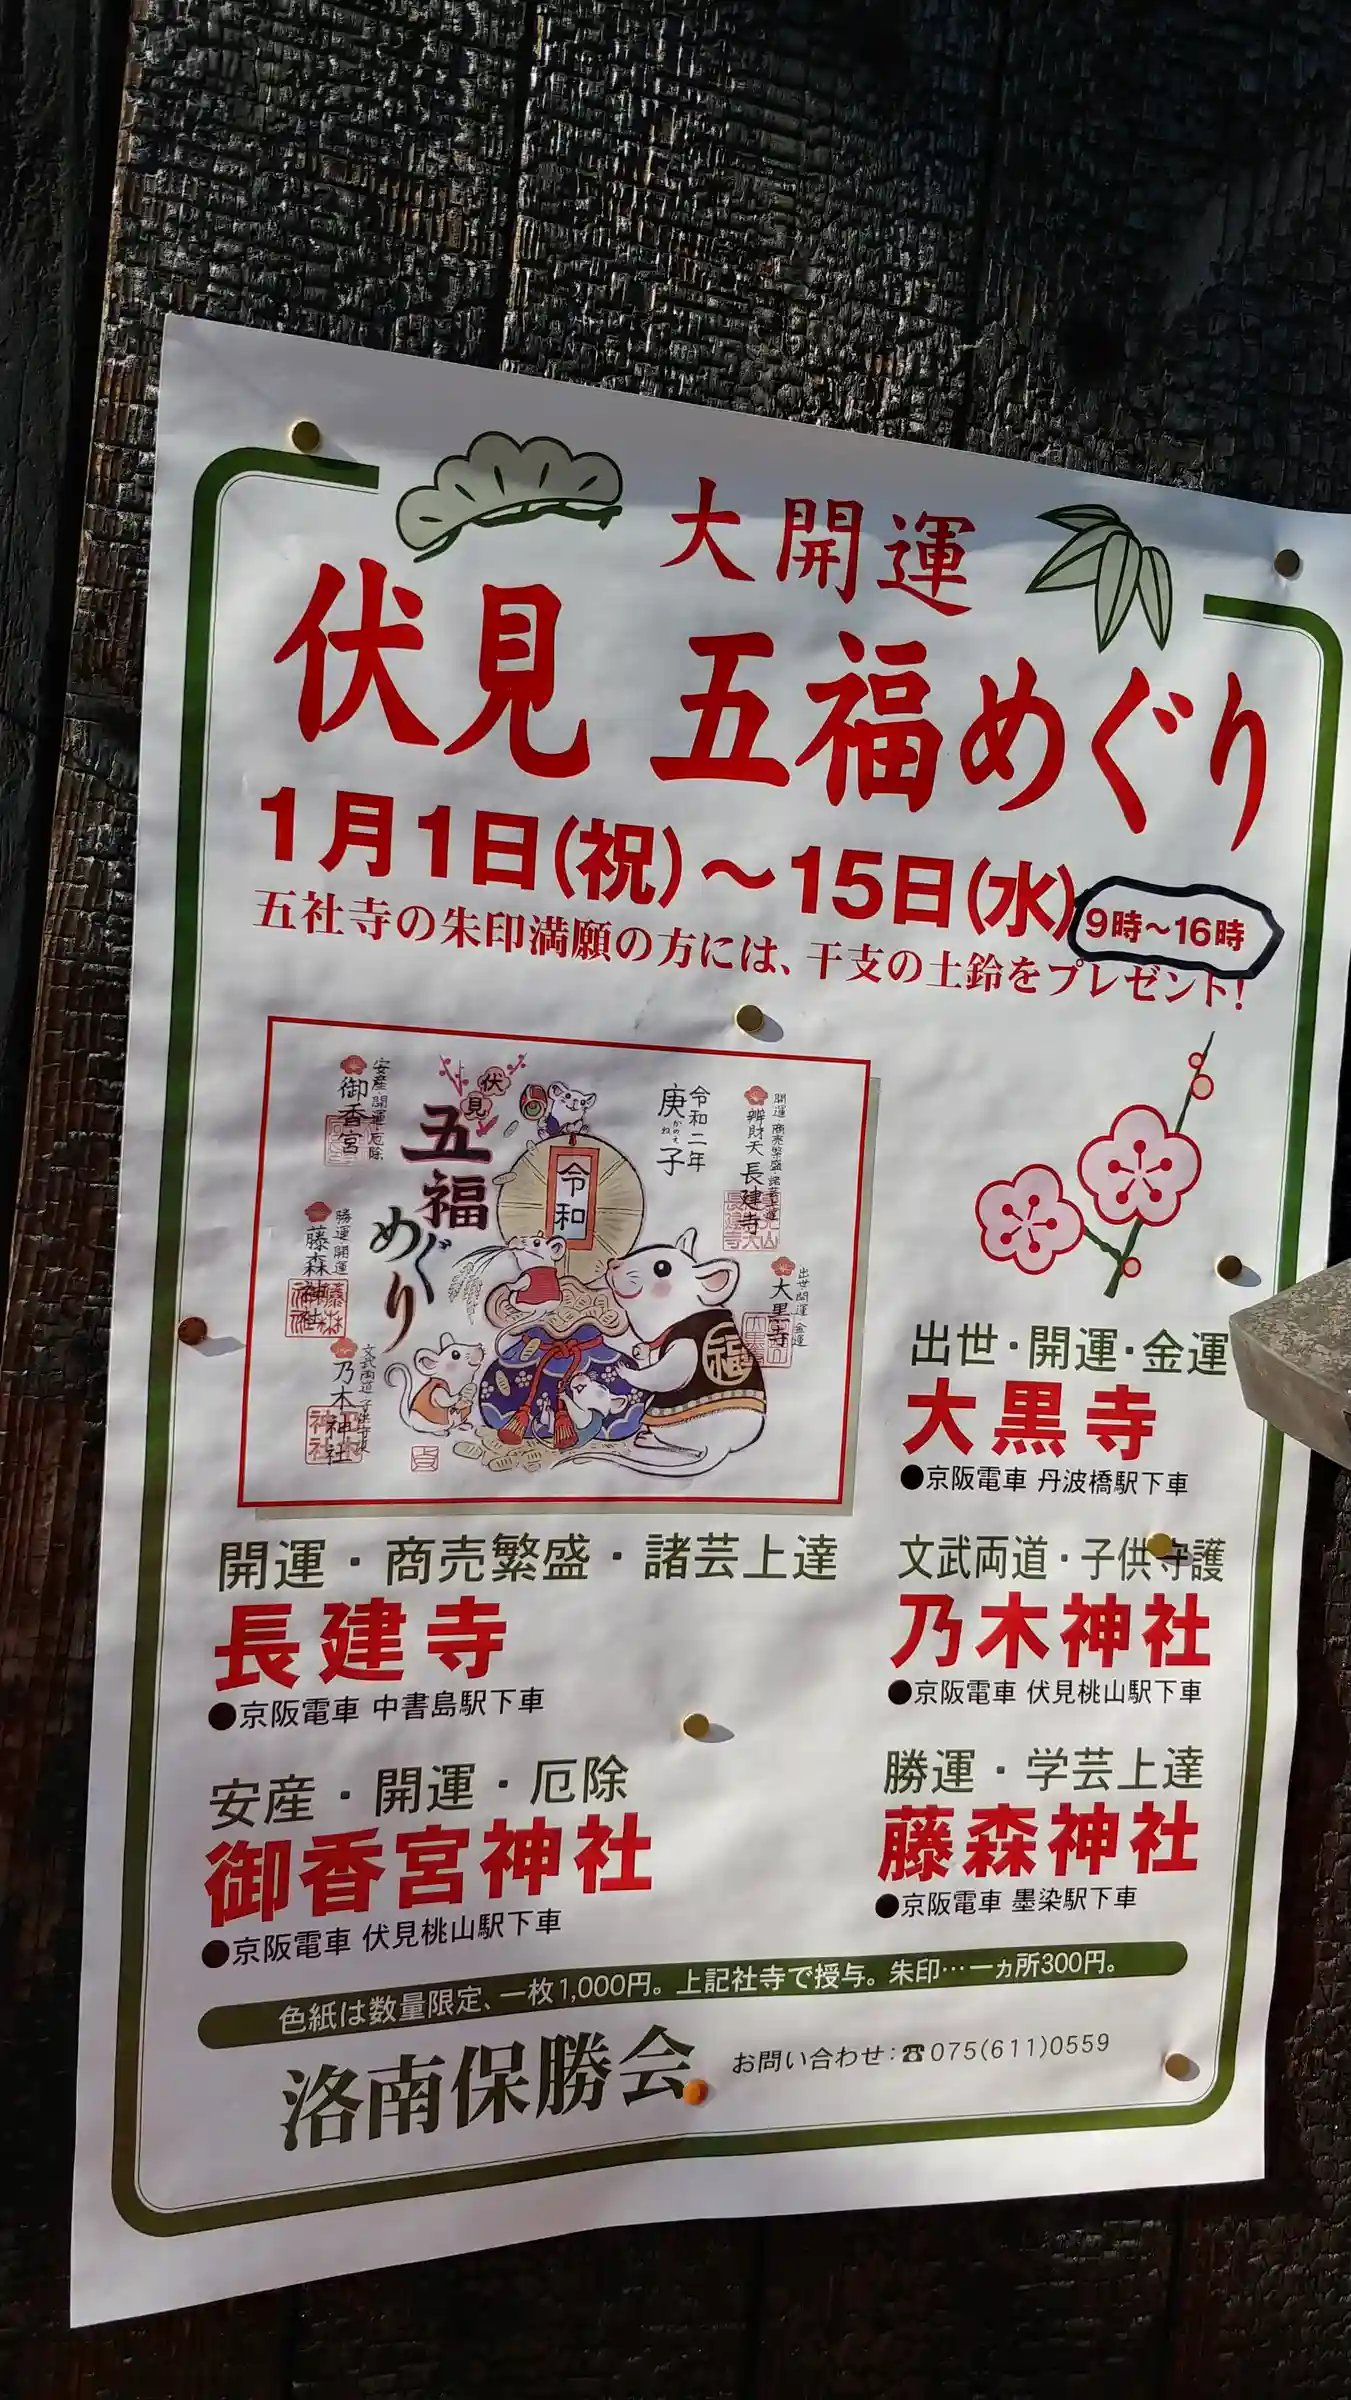 大開運
伏見 五福めぐり
1月1日(祝)～15日(水) 9時～16時
五社寺の朱印満願の方には、干支の土鈴をプレゼント!
安産 開運 厄除
御香宮
勝運 開運
藤森神社
文武両道 子供守護
乃木神社
伏見
五福
めぐり
令和
令和二年
庚子
かのえ
ね
開運 商売繁盛 諸芸上達
辨財天 長建寺
出世 開運 金運
大黒寺
福
出世・開運・金運
大黒寺
●京阪電車 丹波橋駅下車
開運・商売繁盛・諸芸上達
長建寺
●京阪電車 中書島駅下車
文武両道・子供守護
乃木神社
●京阪電車 伏見桃山駅下車
安産・開運・厄除
御香宮神社
●京阪電車 伏見桃山駅下車
勝運・学芸上達
藤森神社
●京阪電車 墨染駅下車
色紙は数量限定、一枚1,000円。上記社寺で授与。朱印…一ヵ所300円。
洛南保勝会
お問い合わせ:☎075(611)0559